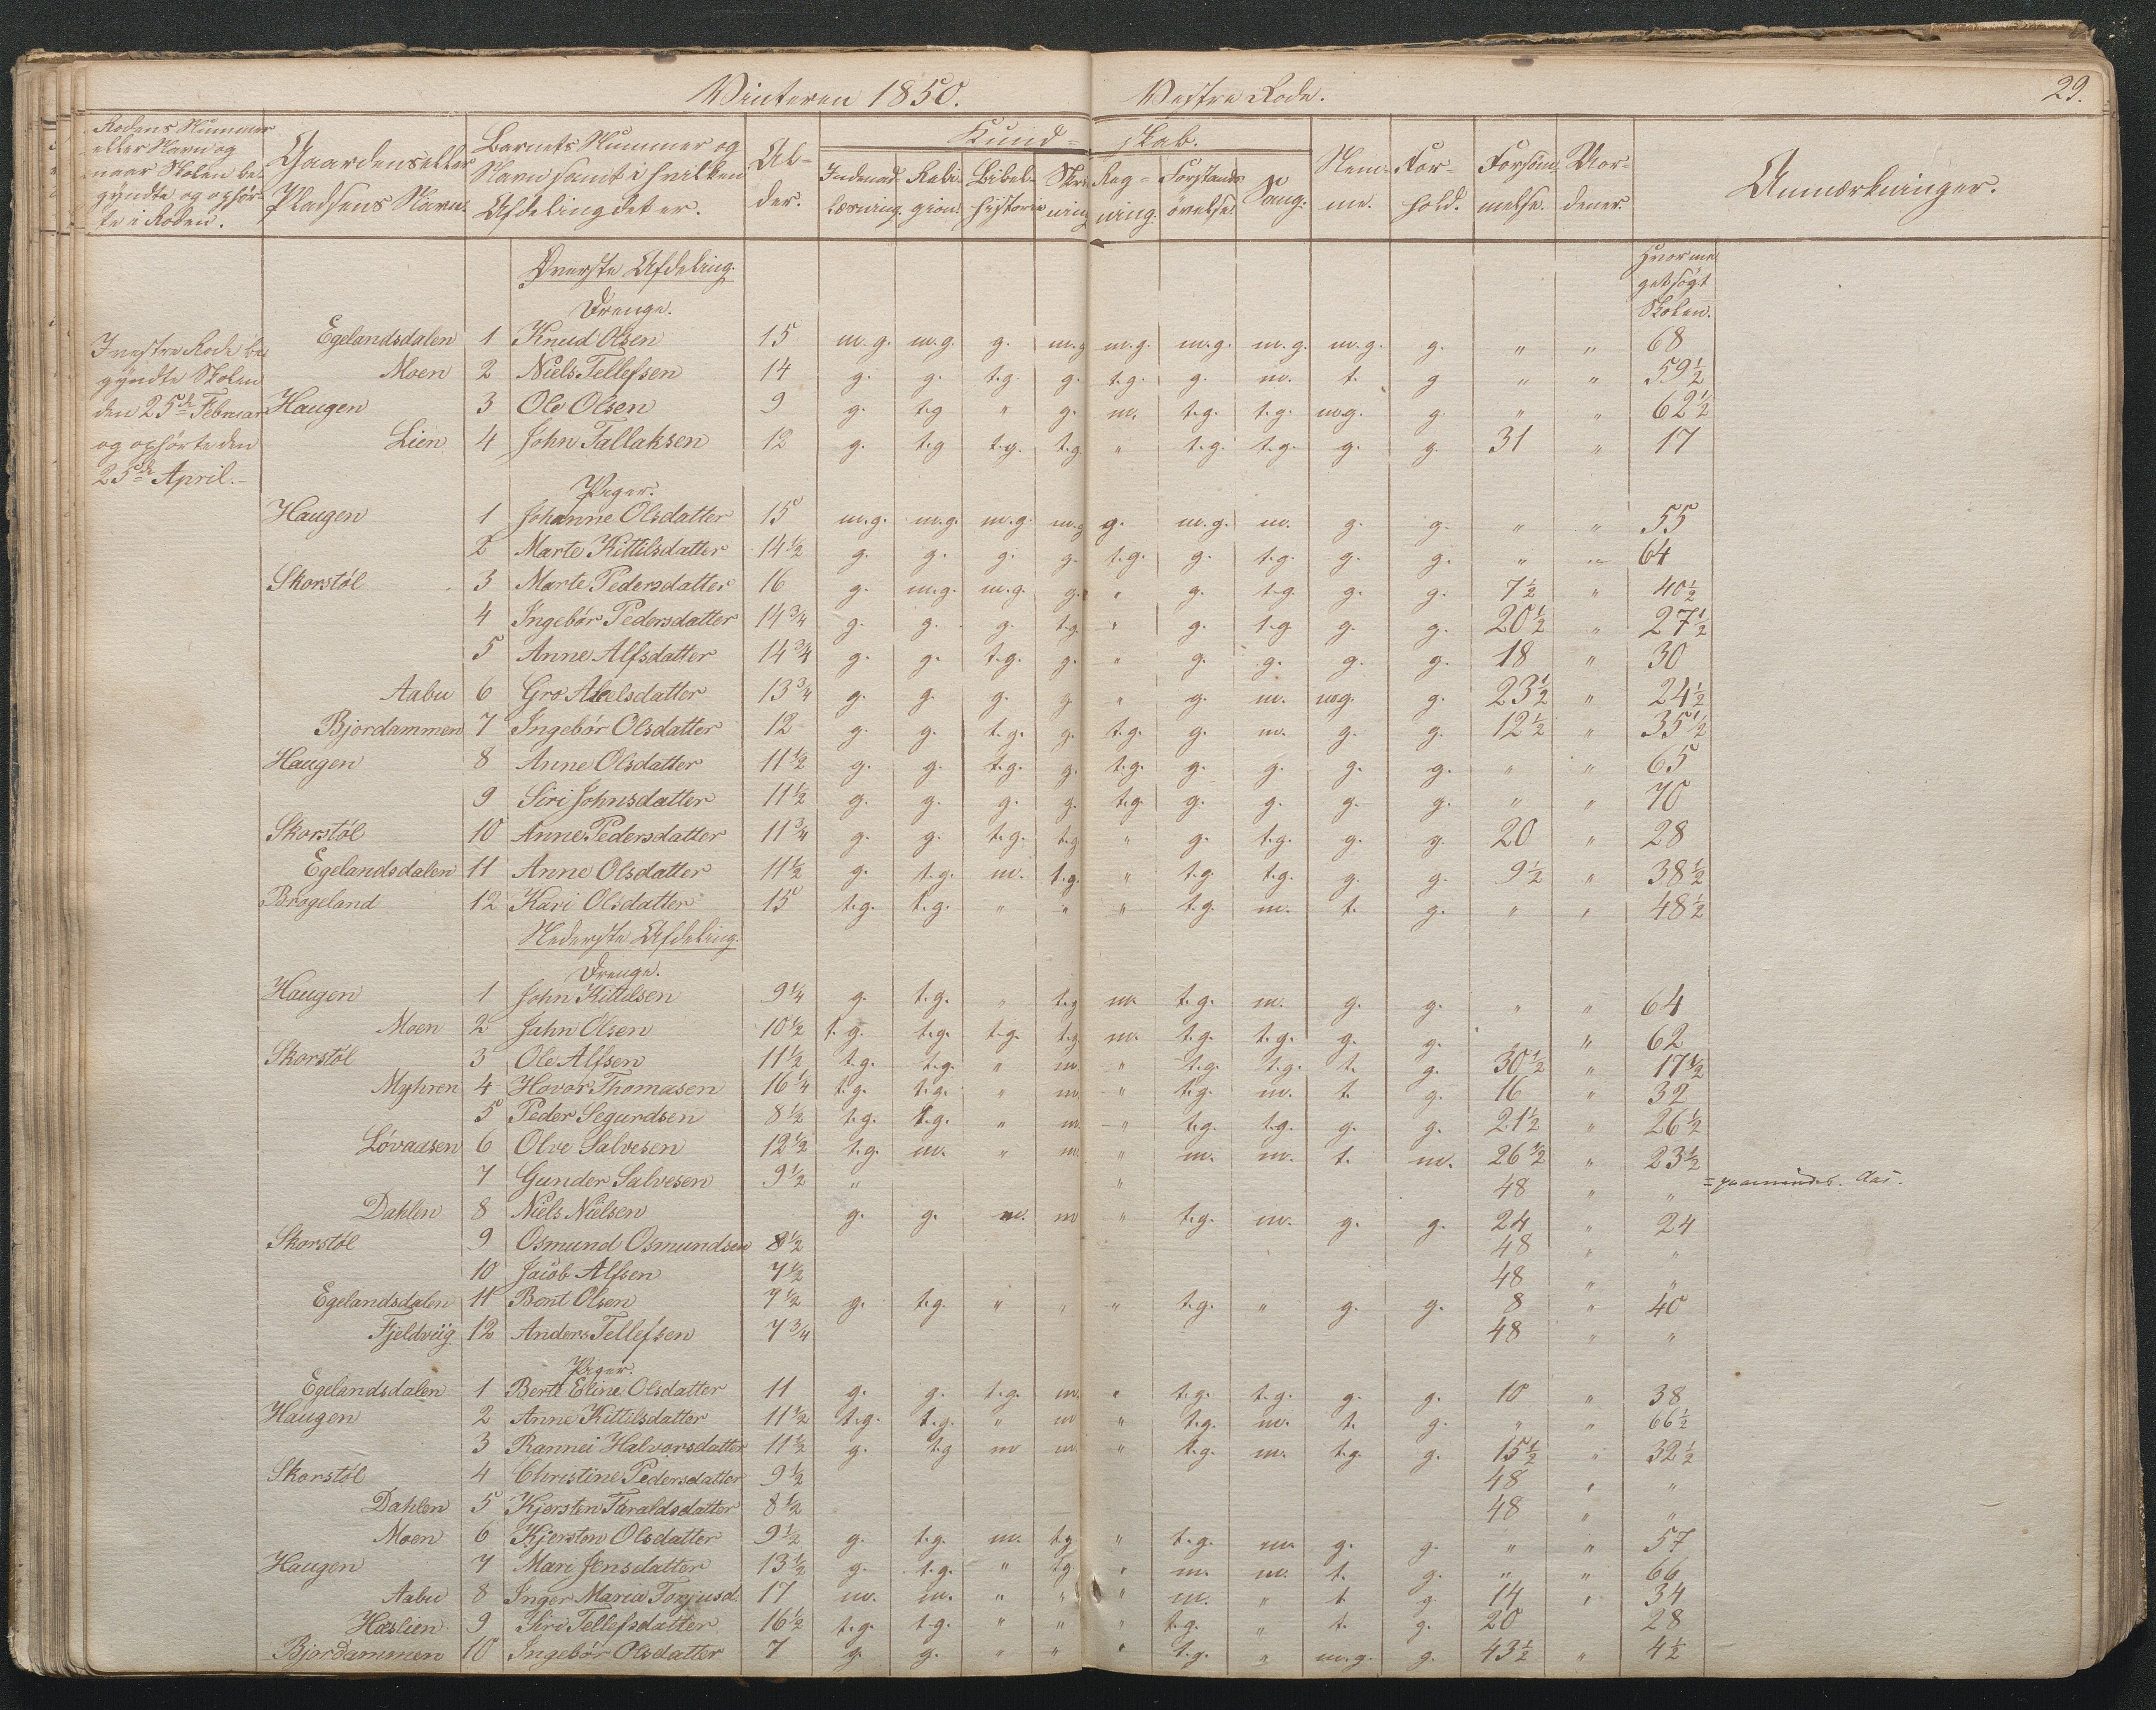 Vinteren 1850. Vestre Rode. 29.
Rodens Nummer eller Navn og naar Skolen begyndte og ophørte i Roden. Gaardens eller Pladsens Navn. Barnets Nummer og Navn samt i hvilken Afdeling det er. Alder. Kundskab. Indenadlæsning. Religion. Bibelhistorie. Skrivning. Regning. Forstandsøvelse. Sang. Nemme. Forhold. Forsømmelse. Anmærkninger.
Øverste Afdeling. Hvormeget søgt Skolen.
Drenge.
I vestre Rode begyndte Skolen den 25de Februar og ophørte den 25de April.-
Egelandsdalen 1 Knud Olsen 15 m.g. m.g. g. m.g m.g. m.g. m.g. m.g. g. " " 68
Moen 2 Niels Tellefsen 14 g. g. t.g. g. t.g. g. m. t. g " " 59½
Haugen 3 Ole Olsen 9 g. t.g " g. m. t.g. t.g. m.g. g. " " 62½
Lien 4 John Tallaksen 12 g. t.g t.g. t.g. " t.g. t.g. g. g. 31 " 17
Piger.
Haugen 1 Johanne Olsdatter 15 m.g. m.g. m.g. m.g g. m.g. m. g. g. " " 55
2 Marte Kittilsdatter 14½ g. g. g. g. t.g. g. t.g. g. g. " " 64
Skorstøl 3 Marte Pedersdatter 16 g. m.g. m.g. g. " g. t.g. g. g. 7½ " 40½
4 Ingebør Pedersdatter 14¾ g. g. g. t.g. " g. t.g g. g. 20½ " 27½
5 Anne Alfsdatter 14¾ g. g. t.g. g. " g. g. g. g. 18 " 30
Aabu 6 Gro Abelsdatter 13¾ g. g. g. g " g. m. m.g. g. 23½ " 24½
Bjordammen 7 Ingebør Olsdatter 12 g. g. t.g. g. t.g. g. m. g. g. 12½ " 35½
Haugen 8 Anne Olsdatter 11½ g. g. t.g. g. t.g. g. g. g. g. " " 65
9 Siri Johnsdatter 11½ g. g. g. g. t.g g. g. g. g. " " 70
Skorstøl 10 Anne Pedersdatter 11¾ g. g. t.g. t.g " g. t.g. g. g. 20 " 28
Egelandsdalen 11 Anne Olsdatter 11½ g. t.g. m. t.g. " t.g t.g. g. g. 9½ " 38½
Brøgeland 12 Kari Olsdatter 15 t.g. t.g. " " " t.g. m. t. g. " " 48½
Nederste Afdeling.
Drenge.
Haugen 1 John Kittilsen 9¼ g. t.g. " t.g m. t.g. m. g. g. " " 64
Moen 2 Jahn Olsen 10½ t.g. t.g. t.g. t.g m. t.g. t.g. g. g. " " 62
Skorstøl 3 Ole Alfsen 11½ t.g. t.g. " m. " t.g. t.g. t. g. 30½ " 17½
Myhren 4 Hovor Thomasen 16¼ t.g. t.g. " m. " t.g. m. t. g. 16 " 32
5 Peder Segurdsen 8½ t.g. t.g. " m " t.g. t.g. g. g. 21½ " 26½
Løvaasen 6 Olve Salvesen 12½ t.g. m. " m. " m. m. t. m. 26½ " 23½
7 Gunder Salvesen 9½ " " 48 " "
Dahlen 8 Niels Nielsen g. g. m. m " t.g. m. g. g. 24 " 24
Skorstøl 9 Osmund Osmundsen 8½ 48 " "
10 Jacob Alfsen 7½ 48 " "
Egelandsdalen 11 Bent Olsen 7½ g. t.g. " " " t.g. " g. g. 8 " 40
Fjeldviig 12 Anders Tellefsen 7¾ 48 " "
Piger.
Egelandsdalen 1 Berte Eline Olsdatter 11 g. g. t.g. m. " t.g. t.g. g. g. 10 " 38
Haugen 2 Anne Kittilsdatter 11½ t.g. t.g. " m " t.g. m. t. g. " " 66½
3 Rannei Halvorsdatter 11½ g. t.g m m " t.g. m. t.g. g. 15½ " 32½
Skorstøl 4 Christine Pedersdatter 9½ 48 " "
Dahlen 5 Kjersten Taraldsdatter 8½ 48 " "
Moen 6 Kjersten Olsdatter 9½ g. t.g. m. t.g " t.g. m. g. g. " " 57
Haugen 7 Mari Jensdatter 13½ g. t.g. " t.g " m. m. t. g. " " 66
Aabu 8 Inger Maria Torjusd. 17 m. m. " " " m. " t g. 14 " 34
Hæslien 9 Siri Tellefsdatter 16½ t.g. t.g. " " " t.g. " t. g. 20 28
Bjordammen 10 Ingebør Olsdatter 7 g. g. " " " t.g. " m.g. g. 43½ " 4½